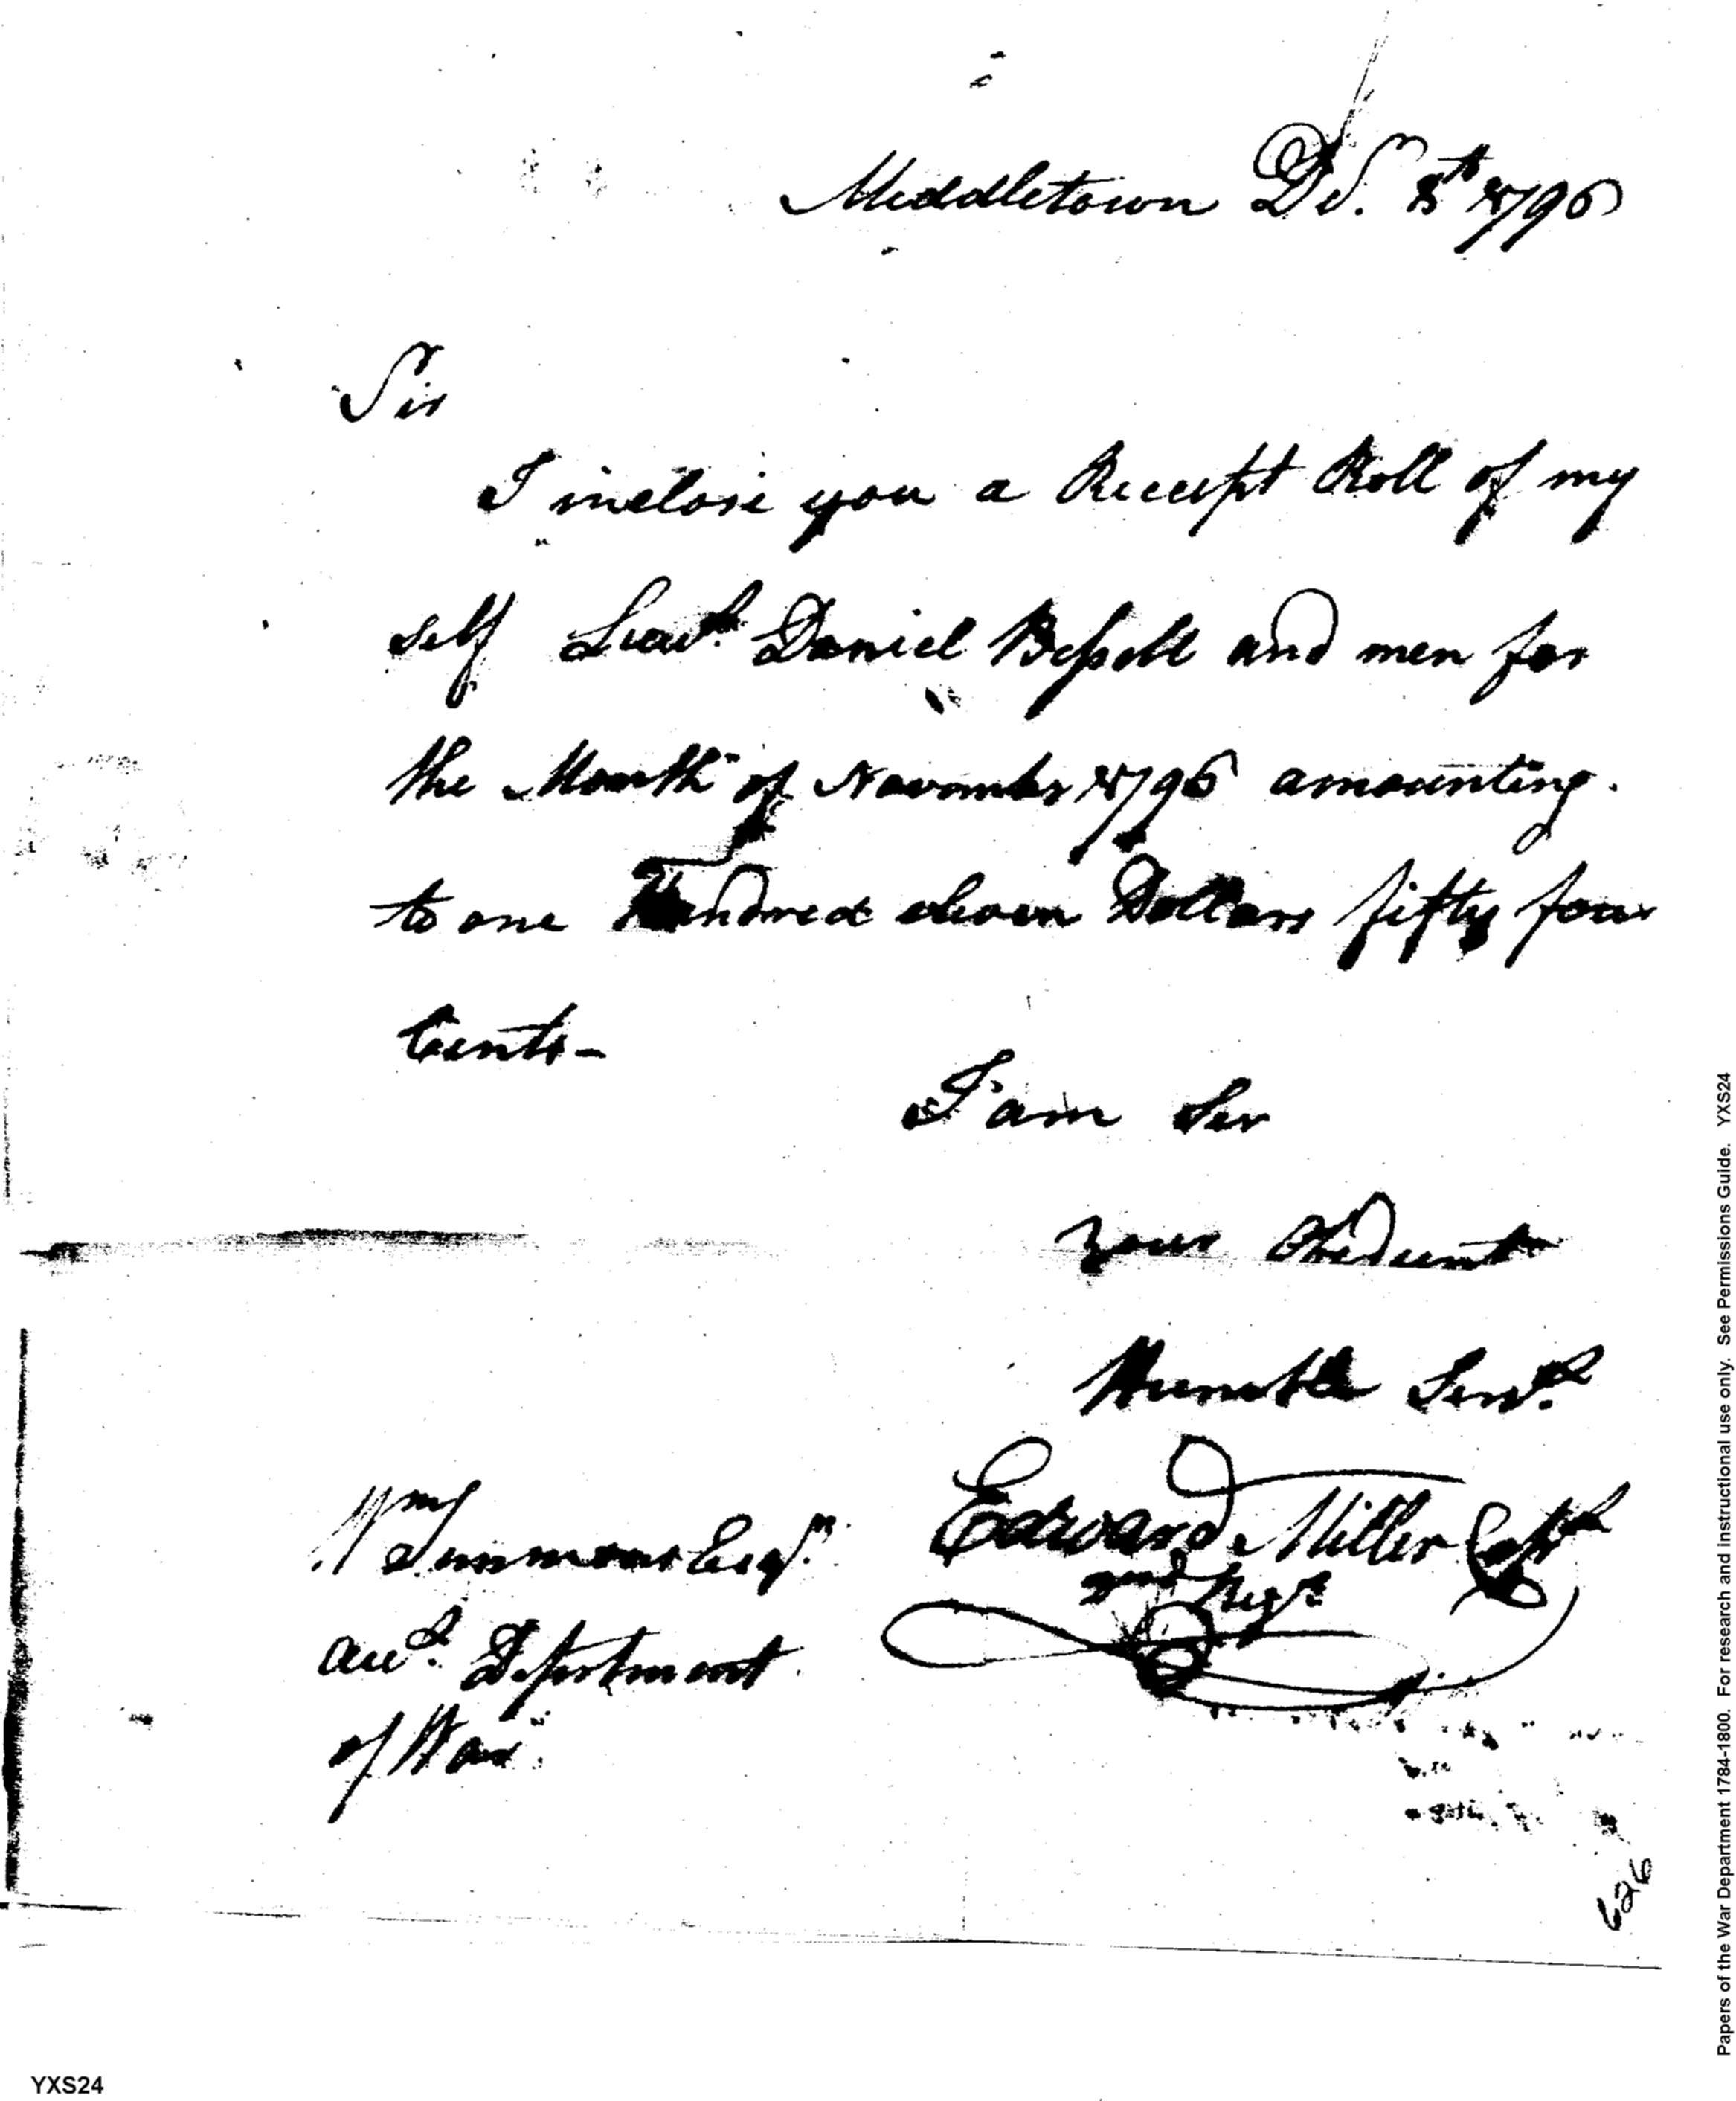 Middletown Dec. 8th 1796
Sir
I inclose you a Receipt Roll of my
self Lieut. Daniel Bissell and men for
the Month of November 1796 amounting
to one Hundred eleven Dollars fifty four
Cents -
I am Sir
your Obedient
Humble Servt.
Edward Miller Capt
2nd Regt
Wm Simmons Esqr.
Acct. Department
of War.
626
YXS24
Papers of the War Department 1784-1800. For research and instructional use only. See Permissions Guide. YXS24